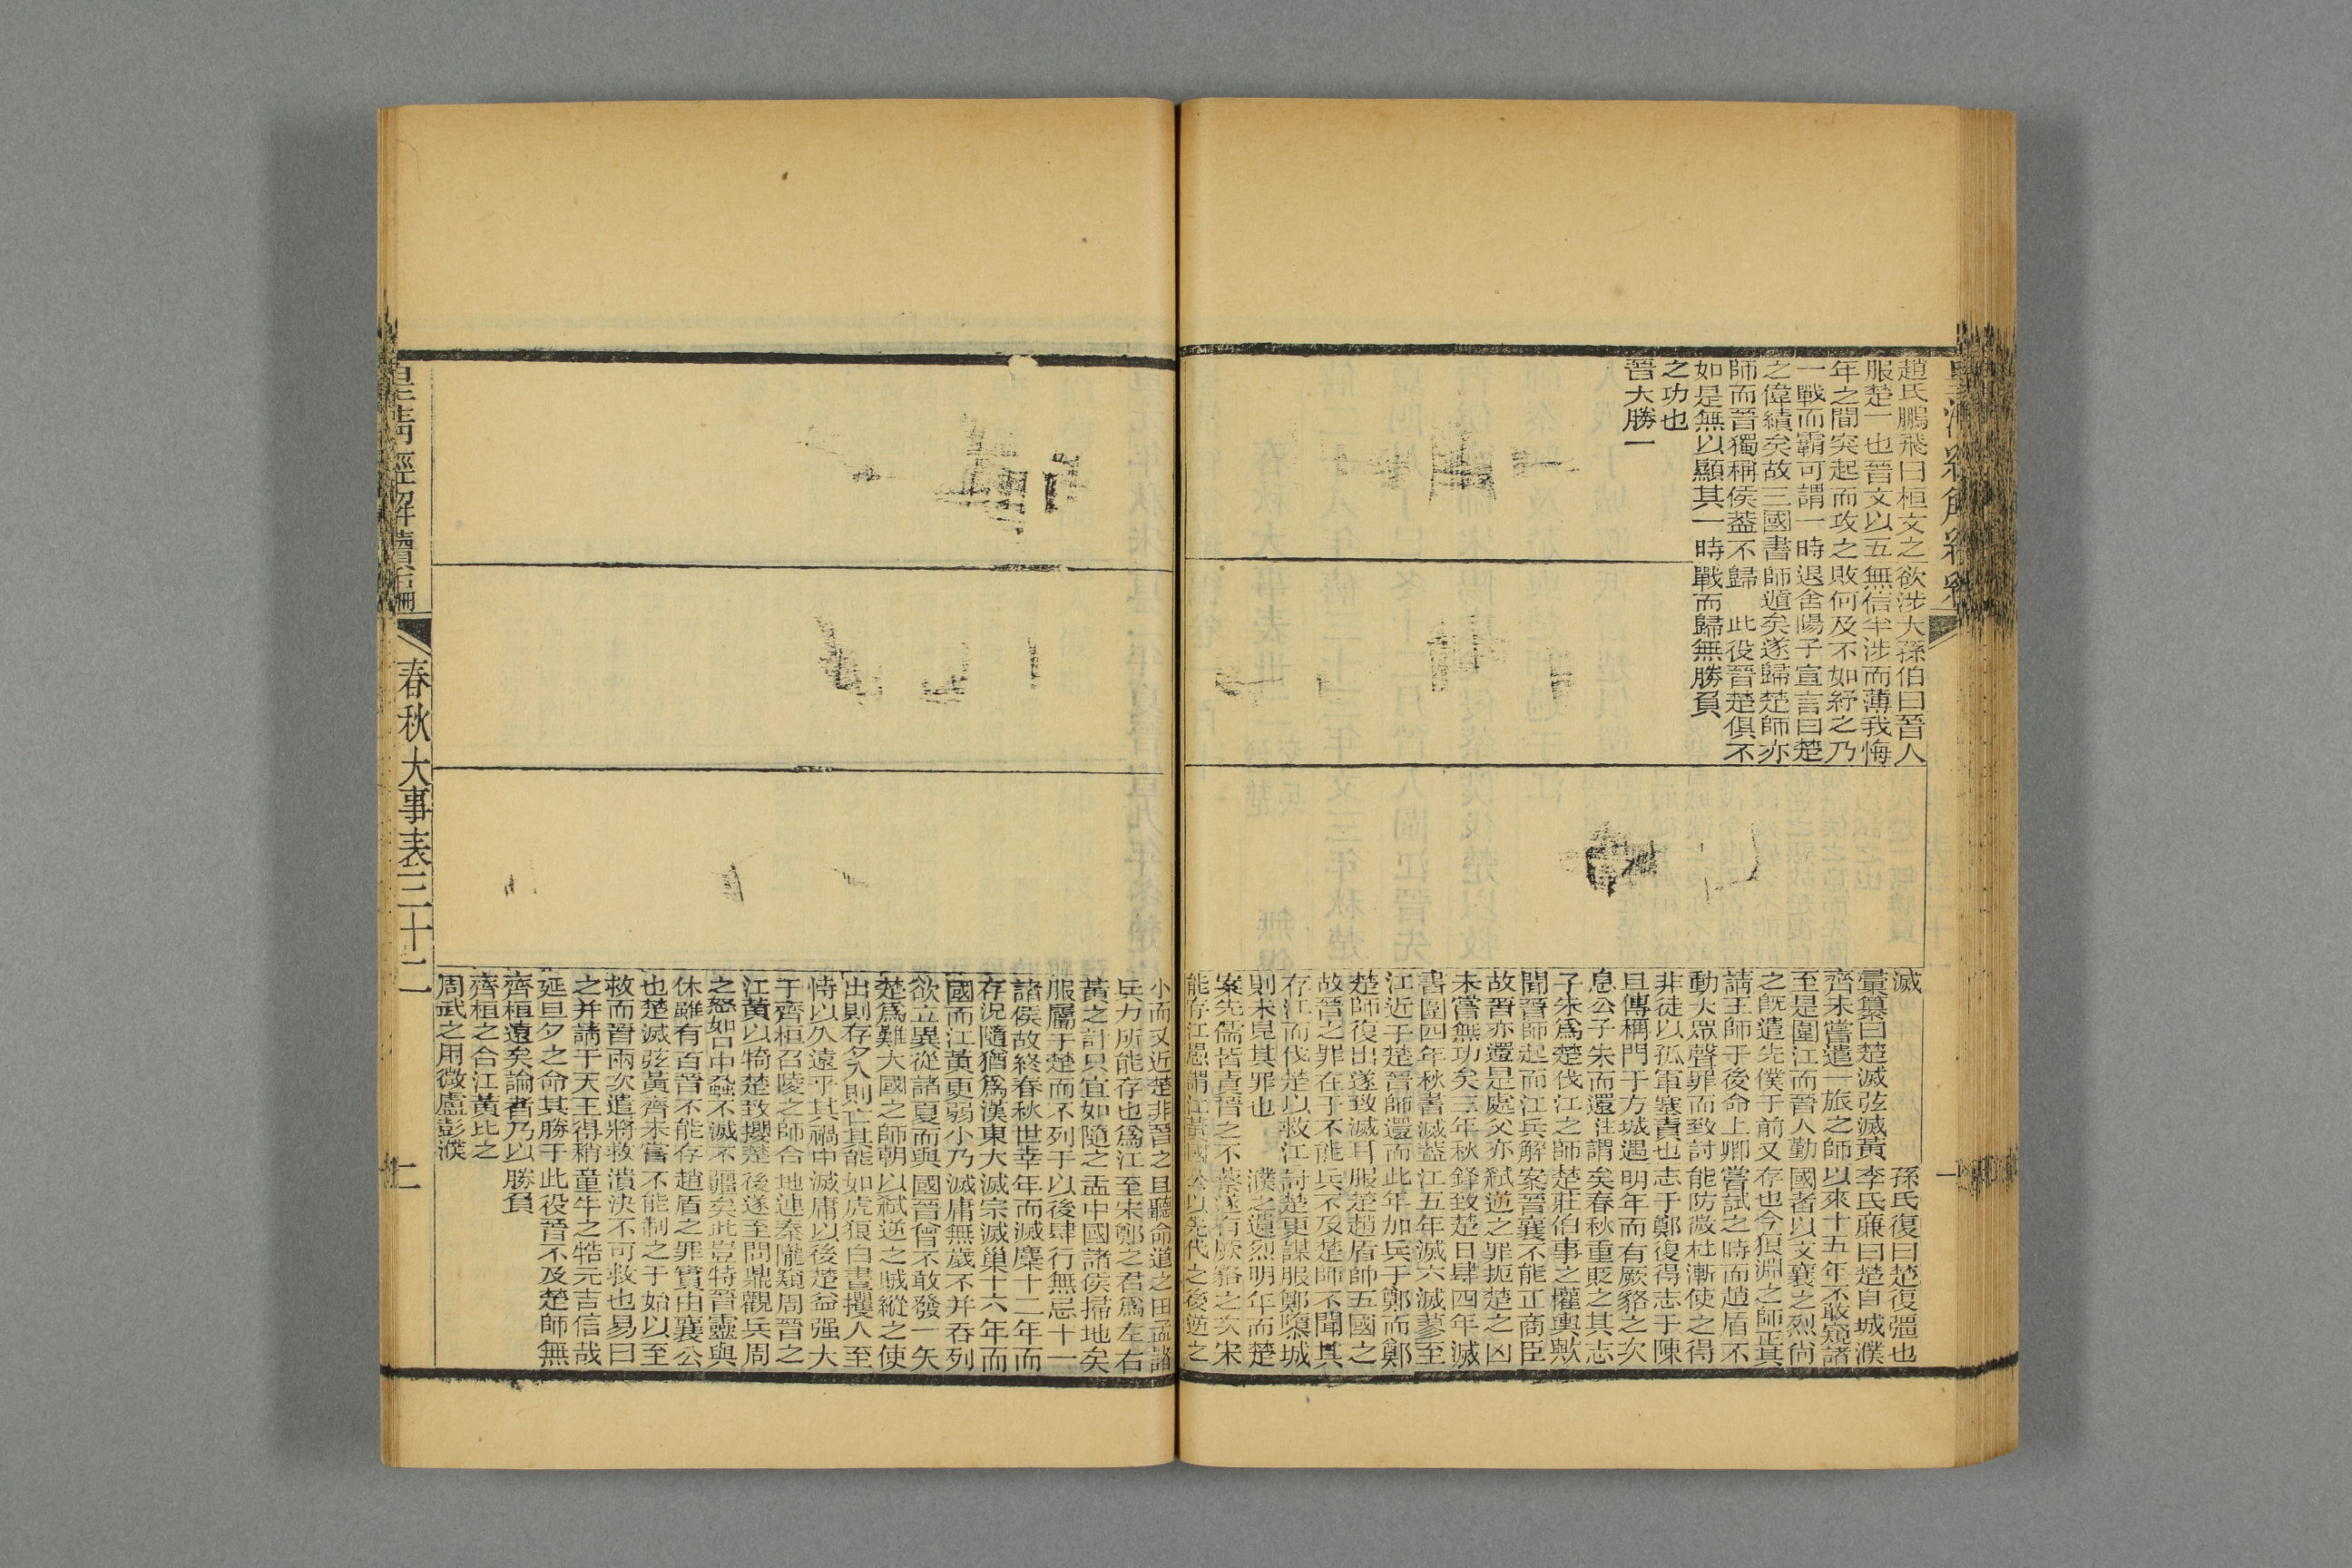 趙氏鵬飛曰桓文之
服楚一也晉文以五
年之間突起而攻之
一戰而霸可謂一時
之偉績矣故三國書
師而晉獨稱侯葢不
如是無以顯其一時
之功也
晉大勝一
欲涉大孫伯曰晉人
無信半涉而薄我悔
敗何及不如紓之乃
退舍陽子宣言曰楚
師遁矣遂歸楚師亦
歸　此役晉楚俱不
戰而歸無勝負
滅
彙纂曰楚滅弦滅黃
齊未嘗遣一旅之師
至是圍江而晉人勤
之旣遣先僕于前又
請王師于後命上卿
動大眾聲罪而致討
非徒以孤軍塞責也
且傳稱門于方城遇
息公子朱而還注謂
子朱爲楚伐江之師
聞晉師起而江兵解
故晉亦還是處父亦
未嘗無功矣三年秋
書圍四年秋書滅葢
江近于楚晉師還而
楚師復出遂致滅耳
故晉之罪在于不能
存江而伐楚以救江
則未見其罪也
案先儒皆責晉之不
能存江愚謂江黃國
孫氏復曰楚復彊也
李氏廉曰楚自城濮
以來十五年不敢窺諸
國者以文襄之烈尙
存也今狼淵之師正其
嘗試之時而趙盾不
能防微杜漸使之得
志于鄭復得志于陳
明年而有厥貉之次
矣春秋重貶之其志
楚莊伯事之權輿歟
案晉襄不能正商臣
弒逆之罪扼楚之凶
鋒致楚日肆四年滅
江五年滅六滅蓼至
此年加兵于鄭而鄭
服楚趙盾帥五國之
兵不及楚師不聞其
討楚更謀服鄭墮城
濮之遺烈明年而楚
蔡遂有厥貉之次宋
公以先代之後逆之
一
小而又近楚非晉之
兵力所能存也爲江
黃之計只宜如隨之
服屬于楚而不列于
諸侯故終春秋世幸
存況隨猶爲漢東大
國而江黃更弱小乃
欲立異從諸夏而與
楚爲難大國之師朝
出則存夕入則亡其能
恃以久遠乎其禍中
于齊桓召陵之師合
江黃以犄楚致攖楚
之怒如口中蝨不滅不
休雖有百晉不能存
也楚滅弦黃齊未嘗
救而晉兩次遣將救
之并請于天王得稍
延旦夕之命其勝于
齊桓遠矣論者乃以
齊桓之合江黃比之
周武之用微盧彭濮
且聽命道之田孟諸
至宋鄭之君爲左右
盂中國諸侯掃地矣
以後肆行無忌十一
年而滅麇十二年而
滅宗滅巢十六年而
滅庸無歲不并吞列
國晉曾不敢發一矢
以弒逆之賊縱之使
如虎狼白晝攫人至
滅庸以後楚益强大
地連秦隴窺周晉之
後遂至問鼎觀兵周
疆矣此豈特晉靈與
趙盾之罪實由襄公
不能制之于始以至
潰決不可救也易曰
童牛之牿元吉信哉
此役晉不及楚師無
勝負
皇淸經解續編
春秋大事表三十二
二